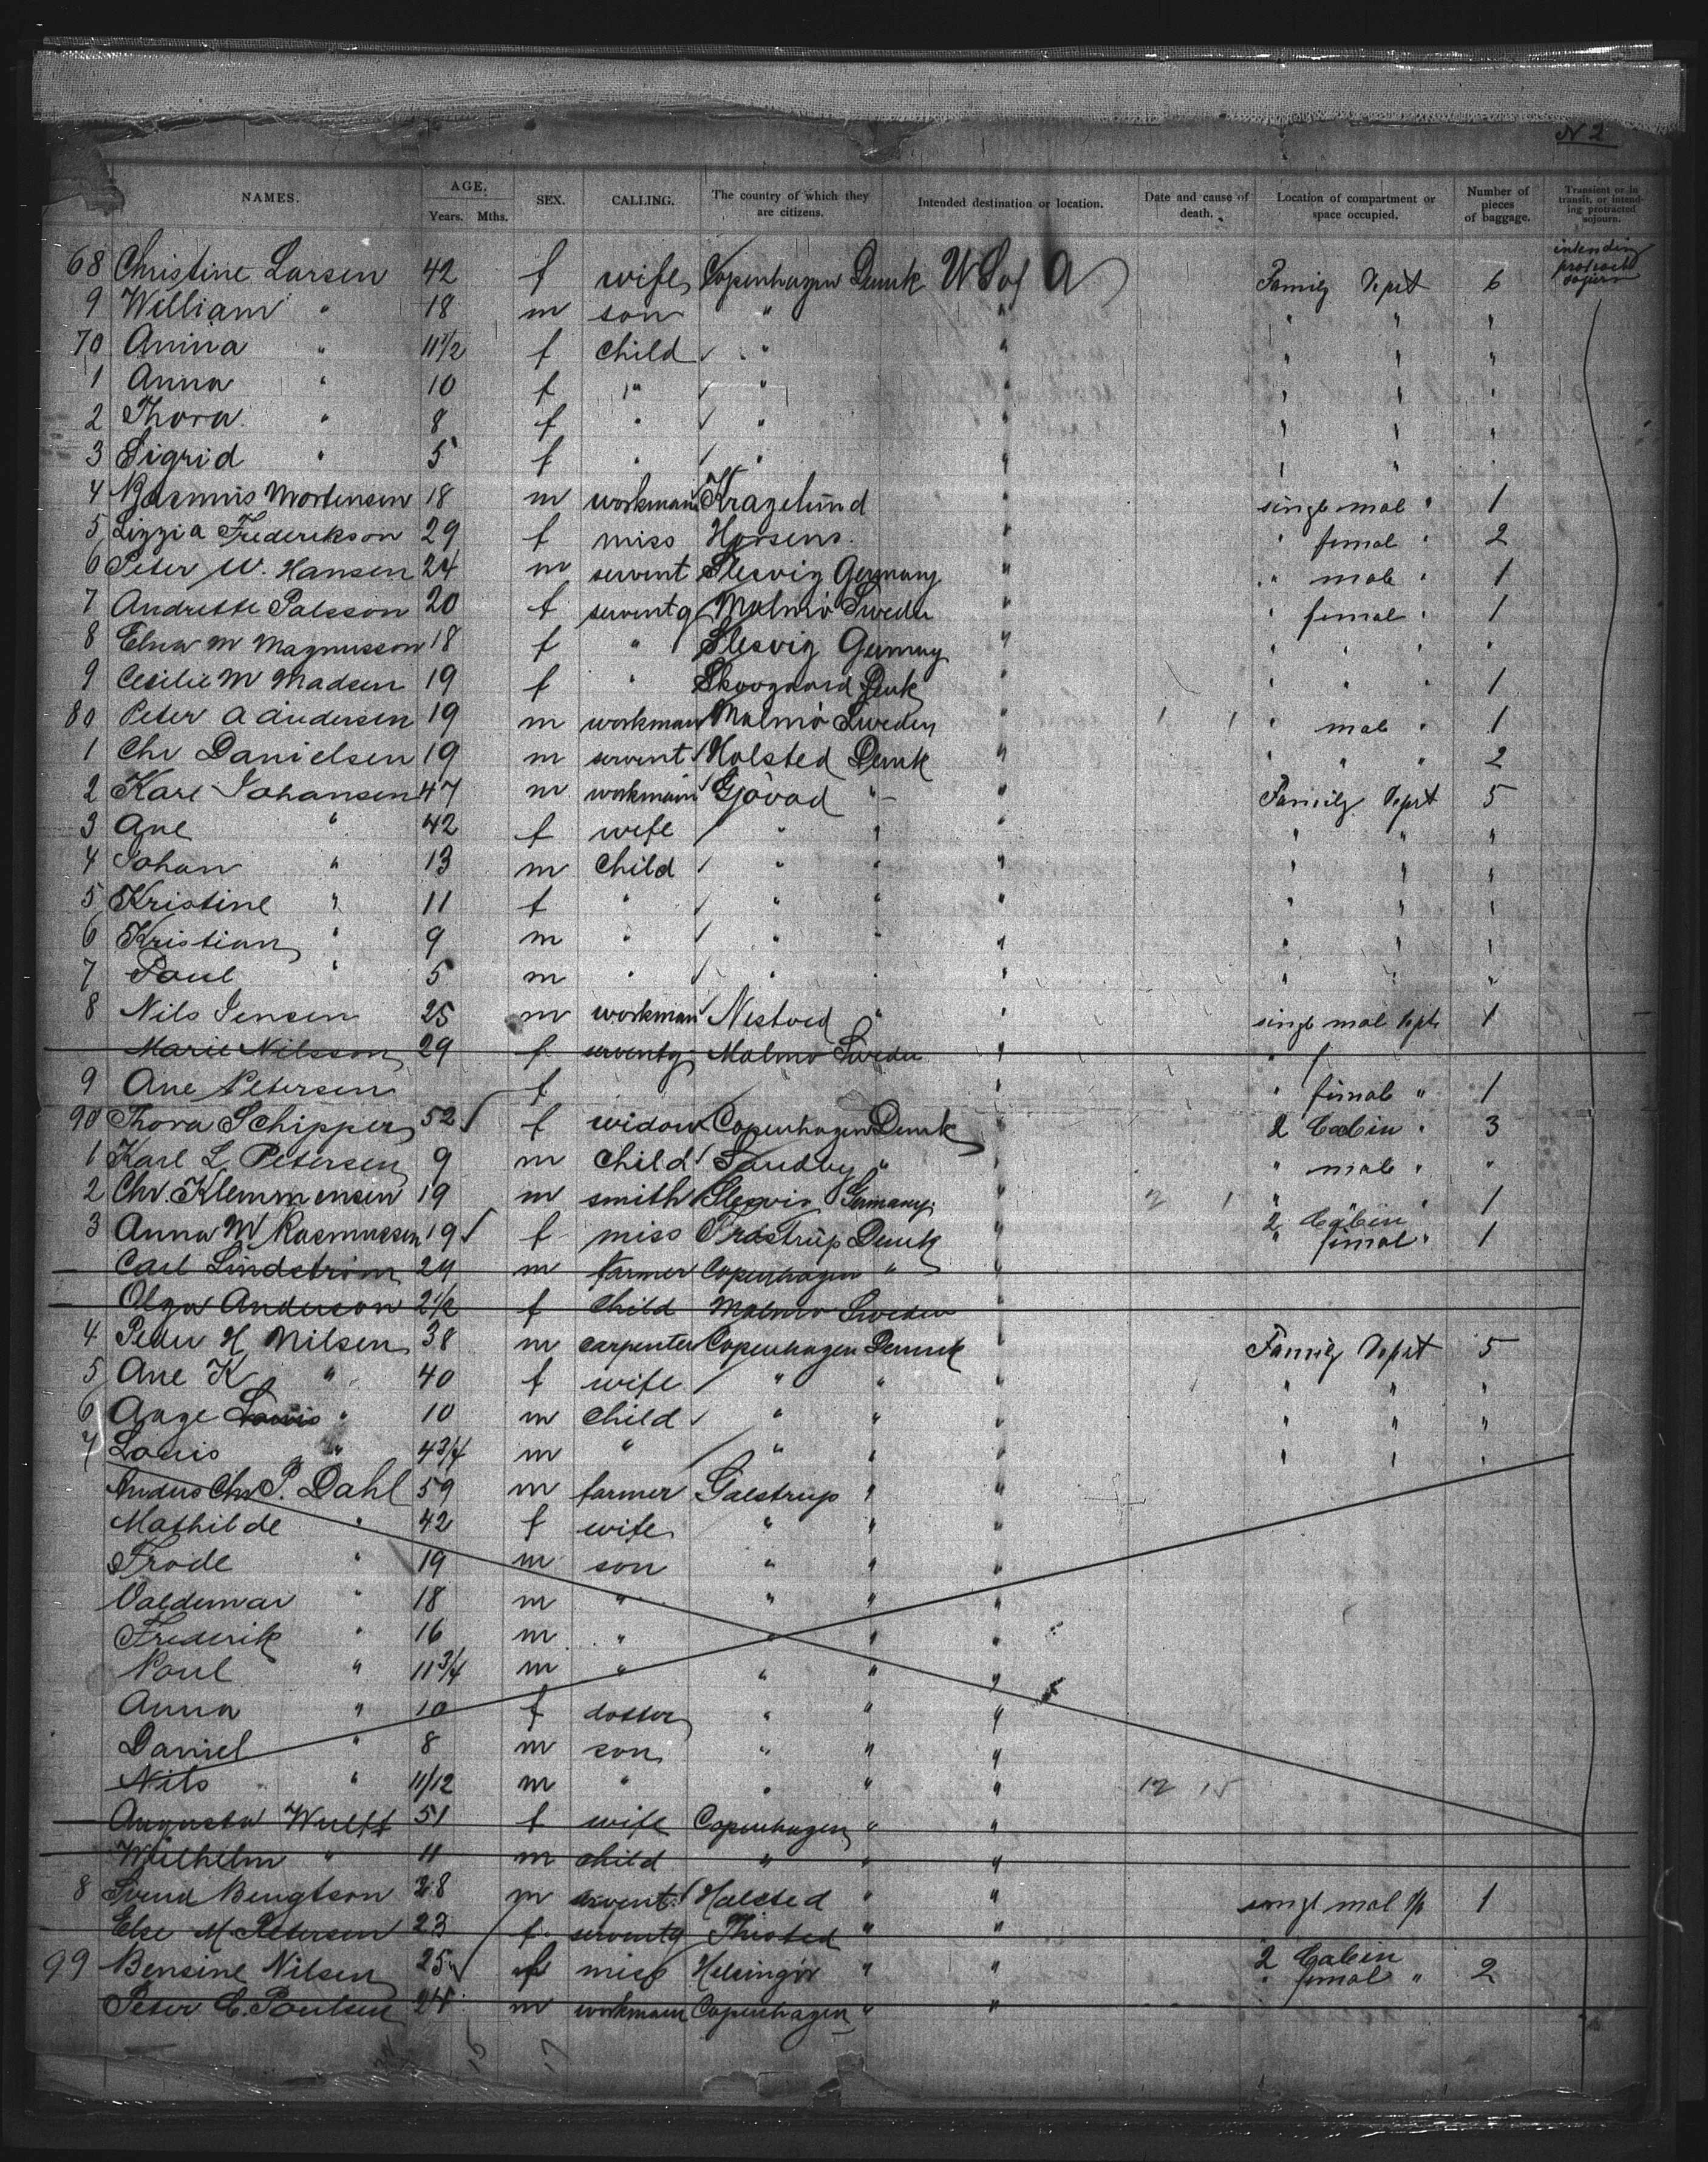 N 2
NAMES. AGE. Years. Mths. SEX. CALLING. The country of which they are citizens. Intended destination or location. Date and cause of death. Location of compartment or space occupied. Number of pieces of baggage. Transient or in transit, or intending protracted sojourn.
68 Christine Larsen 42 f wife Copenhagen Denmk U S of A Family Dept 6 intending protracted sojurn
9 William " 18 m son " " " " "
70 Anina " 11 1/2 f child " " " " "
1 Anna " 10 f " " " " " "
2 Thora " 8 f " " " " " "
3 Sigrid " 5 f " " " " " "
4 Rasmus Mortensen 18 m workman Kragelund " single male " 1
5 Lizzia Frederikson 29 f miss Horsens " " femal " 2
6 Peter W. Hansen 24 m servent Slesvig Germany " " male " 1
7 Andrette Palsson 20 f serventg Malmö Sweden " " femal " 1
8 Elna M Magnusson 18 f " Slesvig Germany " " " " "
9 Cecilie M Madsen 19 f " Skovgaard Denk " " " " 1
80 Peter A Andersen 19 m workman Malmö Sweden " " male " 1
1 Chr Danielsen 19 m servent Holsted Denmk " " " " 2
2 Karl Johansen 47 m workman Gjövad " " Family Dept 5
3 Ane " 42 f wife " " " " " "
4 Johan " 13 m child " " " " " "
5 Kristine " 11 f " " " " " " "
6 Kristian " 9 m " " " " " " "
7 Poul " 5 m " " " " " " "
8 Nils Jensen 25 m workman Nestved " " single male Dept 1
Marie Nilsson 29 f serventg Malmö Sweden " "
9 Ane Petersen f " " femal " 1
90 Thora Schipper 52 f widow Copenhagen Denmk " 2 Cabin " 3
1 Karl L Petersen 9 m child Sandby " " " male " "
2 Chr. Klemmensen 19 m smith Slesvig Germany " " " 1
3 Anna M Rasmussen 19 f miss Trastrup Denmk " 2 Cabin femal " 1
Carl Lindström 29 m farmer Copenhagen " "
Olga Anderson 2 1/2 f child Malmö Sweden "
4 Peder H Nilsen 38 m carpenter Copenhagen Denmk " Family Dept 5
5 Ane K " 40 f wife " " " " " "
6 Aage Louis " 10 m child " " " " " "
7 Louis " 4 3/4 m " " " " " " "
Anders Chr P. Dahl 59 m farmer Galstrup " "
Mathilde " 42 f wife " " "
Frode " 19 m son " " "
Valdemar " 18 m " " " "
Frederik " 16 m " " " "
Poul " 11 3/4 m " " " "
Anna " 10 f dotter " " "
Daniel " 8 m son " " "
Nils " 11/12 m " " " " 12 15
Augusta Wulff 51 f wife Copenhagen " "
Wilhelm " 11 m child " " "
8 Svend Bengtson 28 m servent Halsted " " single male Dp 1
Else M Petersen 23 f serventg Thisted " "
99 Bensine Nilsen 25 f miss Helsingör " " 2 Cabin femal " 2
Peter C. Poulsen 24 m workman Copenhagen " "
15 17